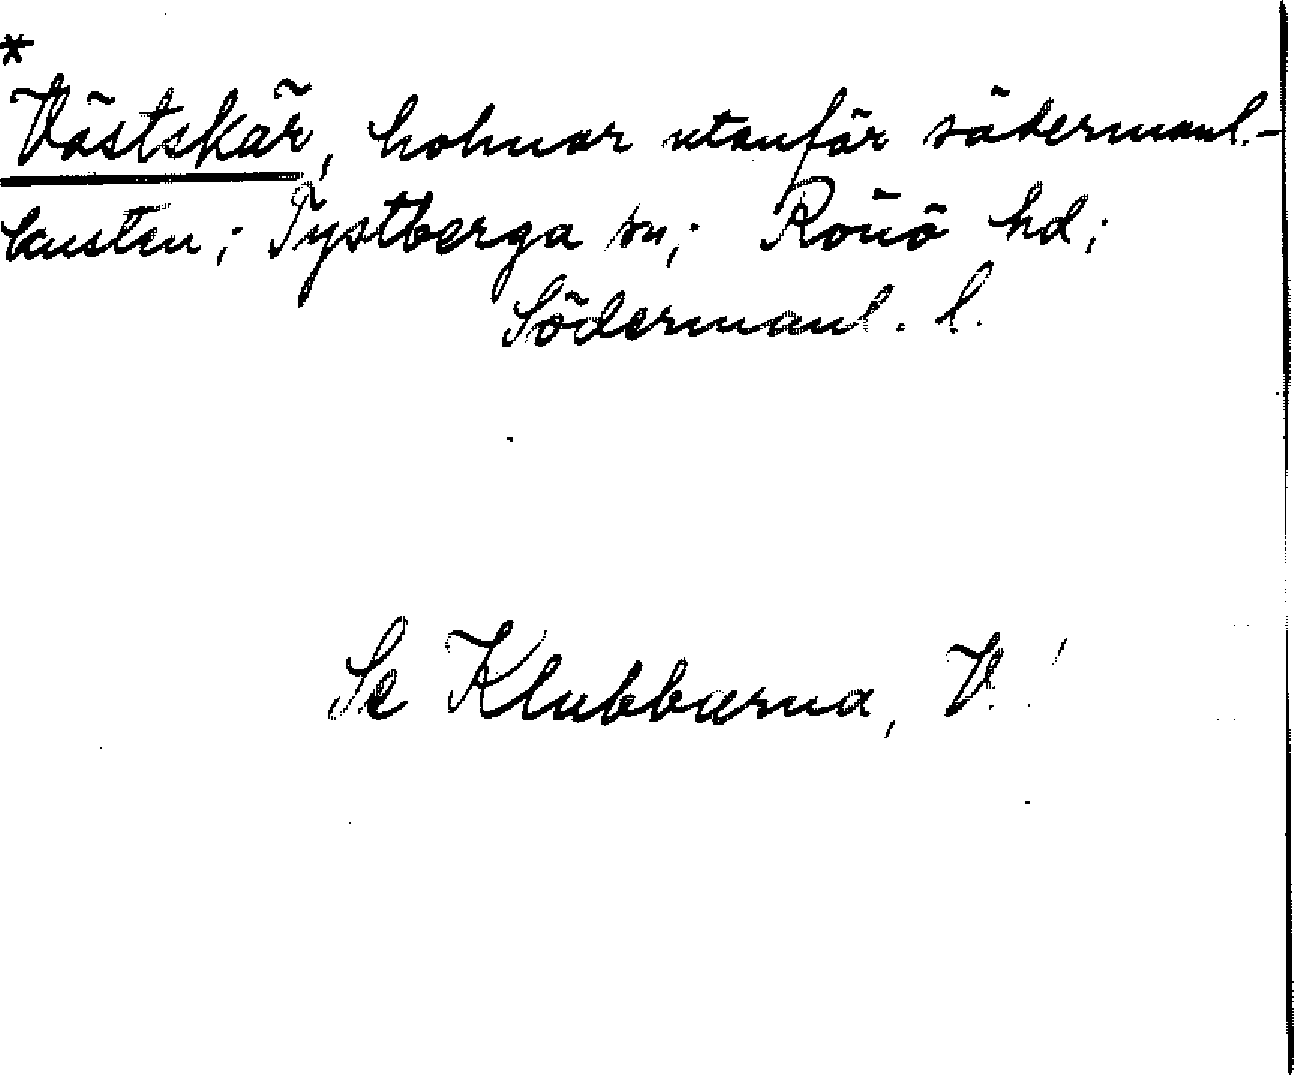 *
Västskär, holmar utanför södermanl.-
kusten; Tystberga sn; Rönö hd;
Södermanl. l.
Se Klubbarna, V.!